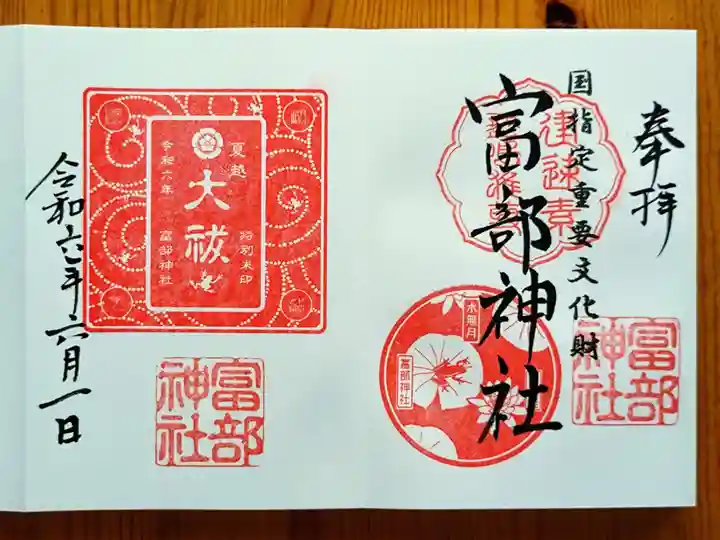 奉拝
国指定重要文化財
富部神社
水無月
富部神社
富部神社
夏越
大祓
令和六年
特別朱印
富部神社
富部神社
令和六年六月一日